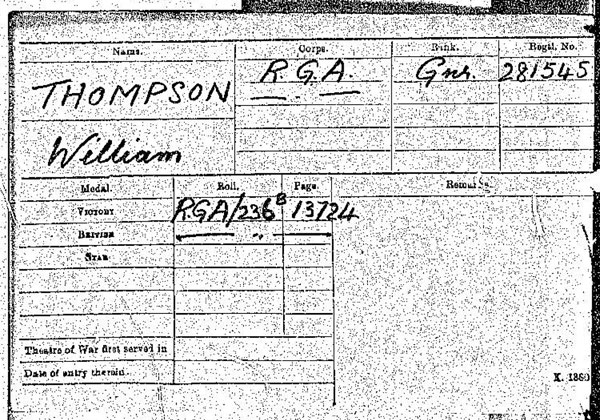 Name. Corps. Rank. Regtl. No.
THOMPSON R.G.A. Gnr. 281545
William
Medal. Roll. Page. Remarks.
VICTORY RGA/236B 13724
BRITISH "
STAR
Theatre of War first served in
Date of entry therein.
K. 1380